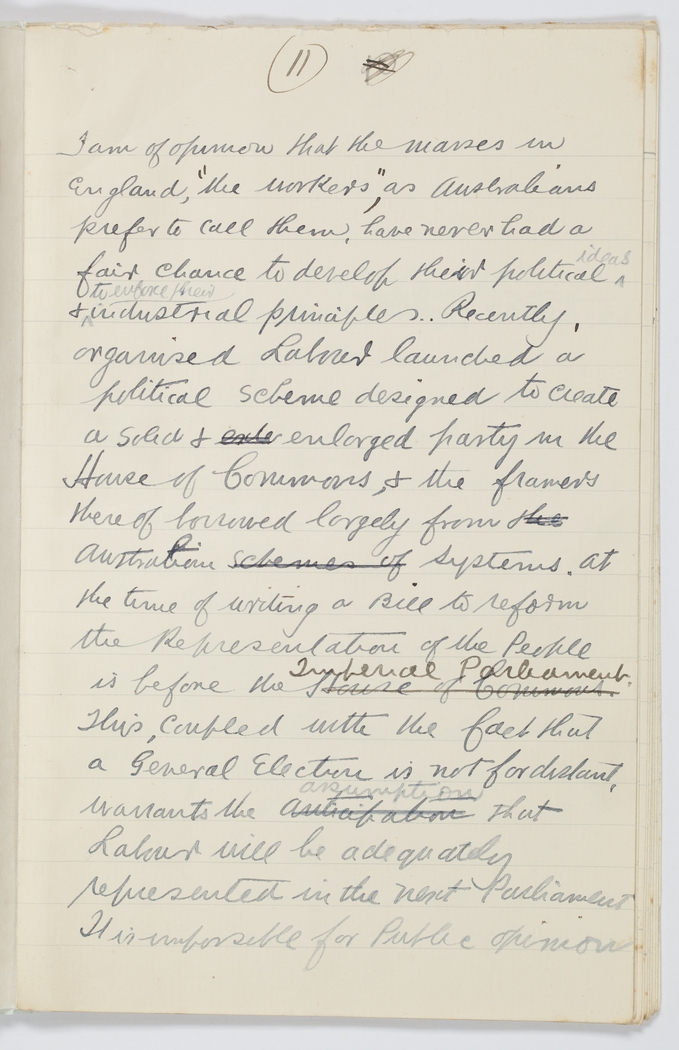 11
I am of opinion that the masses in
England, "the workers", as Australians
prefer to call them, have never had a
fair chance to develop their political ideas
& to enforce their industrial principles.. Recently,
organised Labour launched a
political scheme designed to create
a solid & exte enlarged party in the
House of Commons, & the framers
thereof borrowed largely from the
Australian schemes of systems. At
the time of writing a Bill to reform
the Representation of the People
is before the House of Commons. Imperial Parliament.
This, coupled with the fact that
a General Election is not far distant,
warrants the anticipation assumption that
Labour will be adequately
represented in the next Parliament
It is impossible for Public opinion